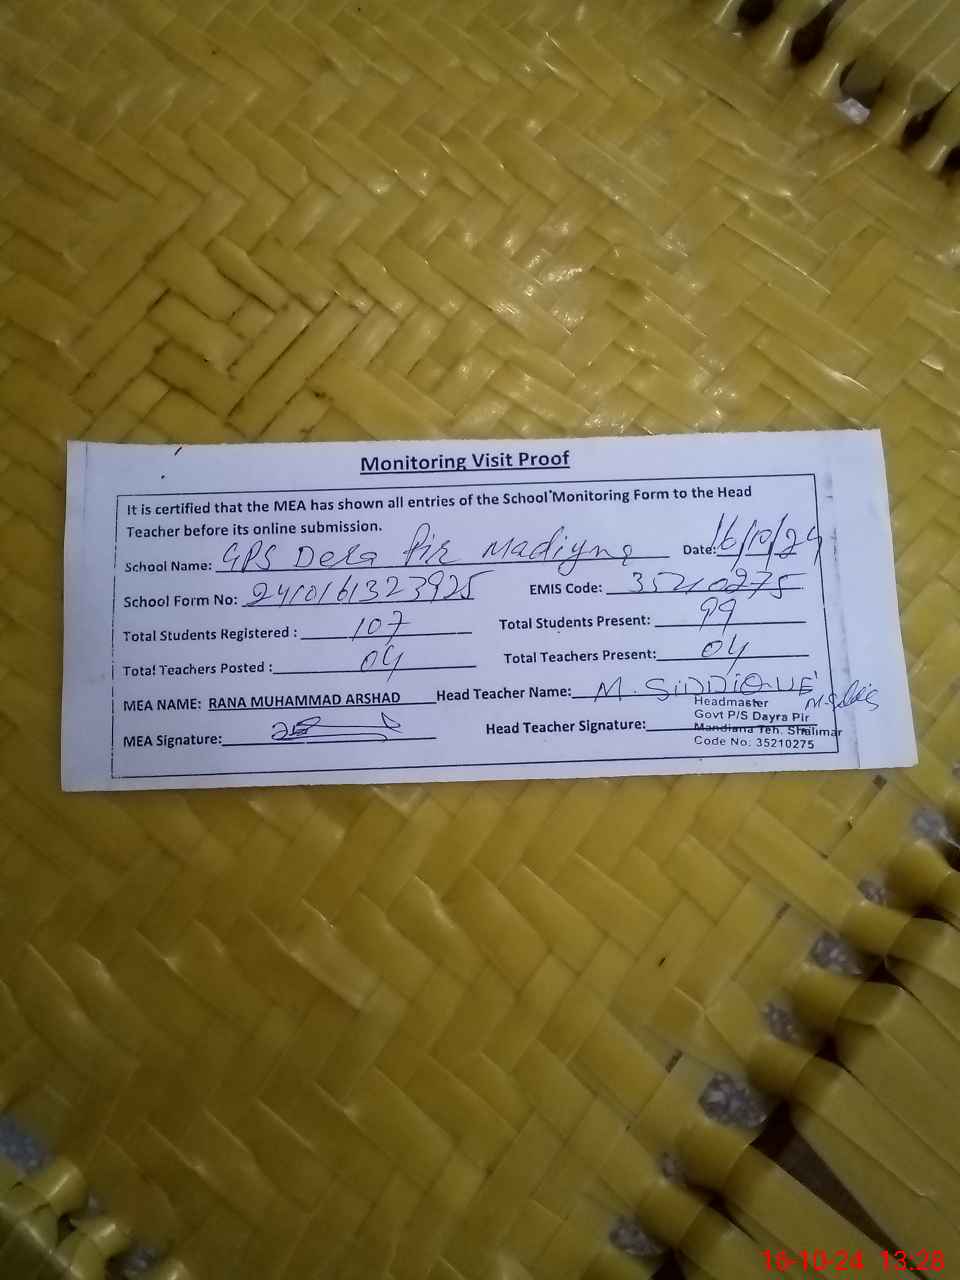 Monitoring Visit Proof
It is certified that the MEA has shown all entries of the School Monitoring Form to the Head
Teacher before its online submission.
School Name: GPS Dera Pir Madiyna Date: 16/10/24
School Form No: 2410161323925 EMIS Code: 35210275
Total Students Registered : 107 Total Students Present: 99
Total Teachers Posted : 04 Total Teachers Present: 04
MEA NAME: RANA MUHAMMAD ARSHAD Head Teacher Name: M. SIDDIQUE
MEA Signature: Head Teacher Signature:
Headmaster
Govt P/S Dayra Pir
Mandiana Teh. Shalimar
Code No: 35210275
16-10-24 13:28